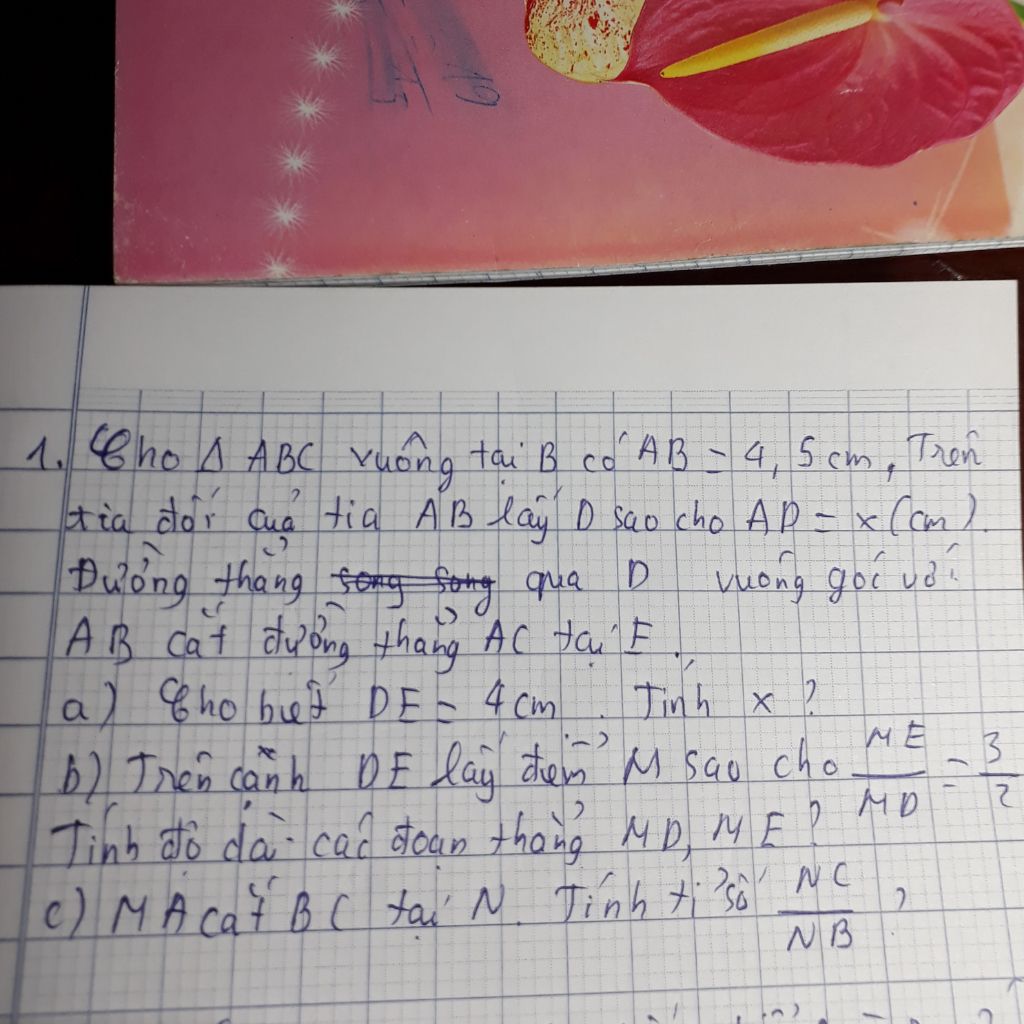 1. Cho Δ ABC vuông tại B có AB = 4,5cm, Trên
tia đối của tia AB lấy D sao cho AD = x (cm).
Đường thẳng song song qua D vuông góc với
AB cắt đường thẳng AC tại E.
a) Cho biết DE = 4cm. Tính x?
b) Trên cãnh DE lấy điểm M sao cho ME/MD = 3/2
Tính độ dài các đoạn thẳng MD, ME?
c) MA cắt BC tại N. Tính tỉ số NC/NB ?